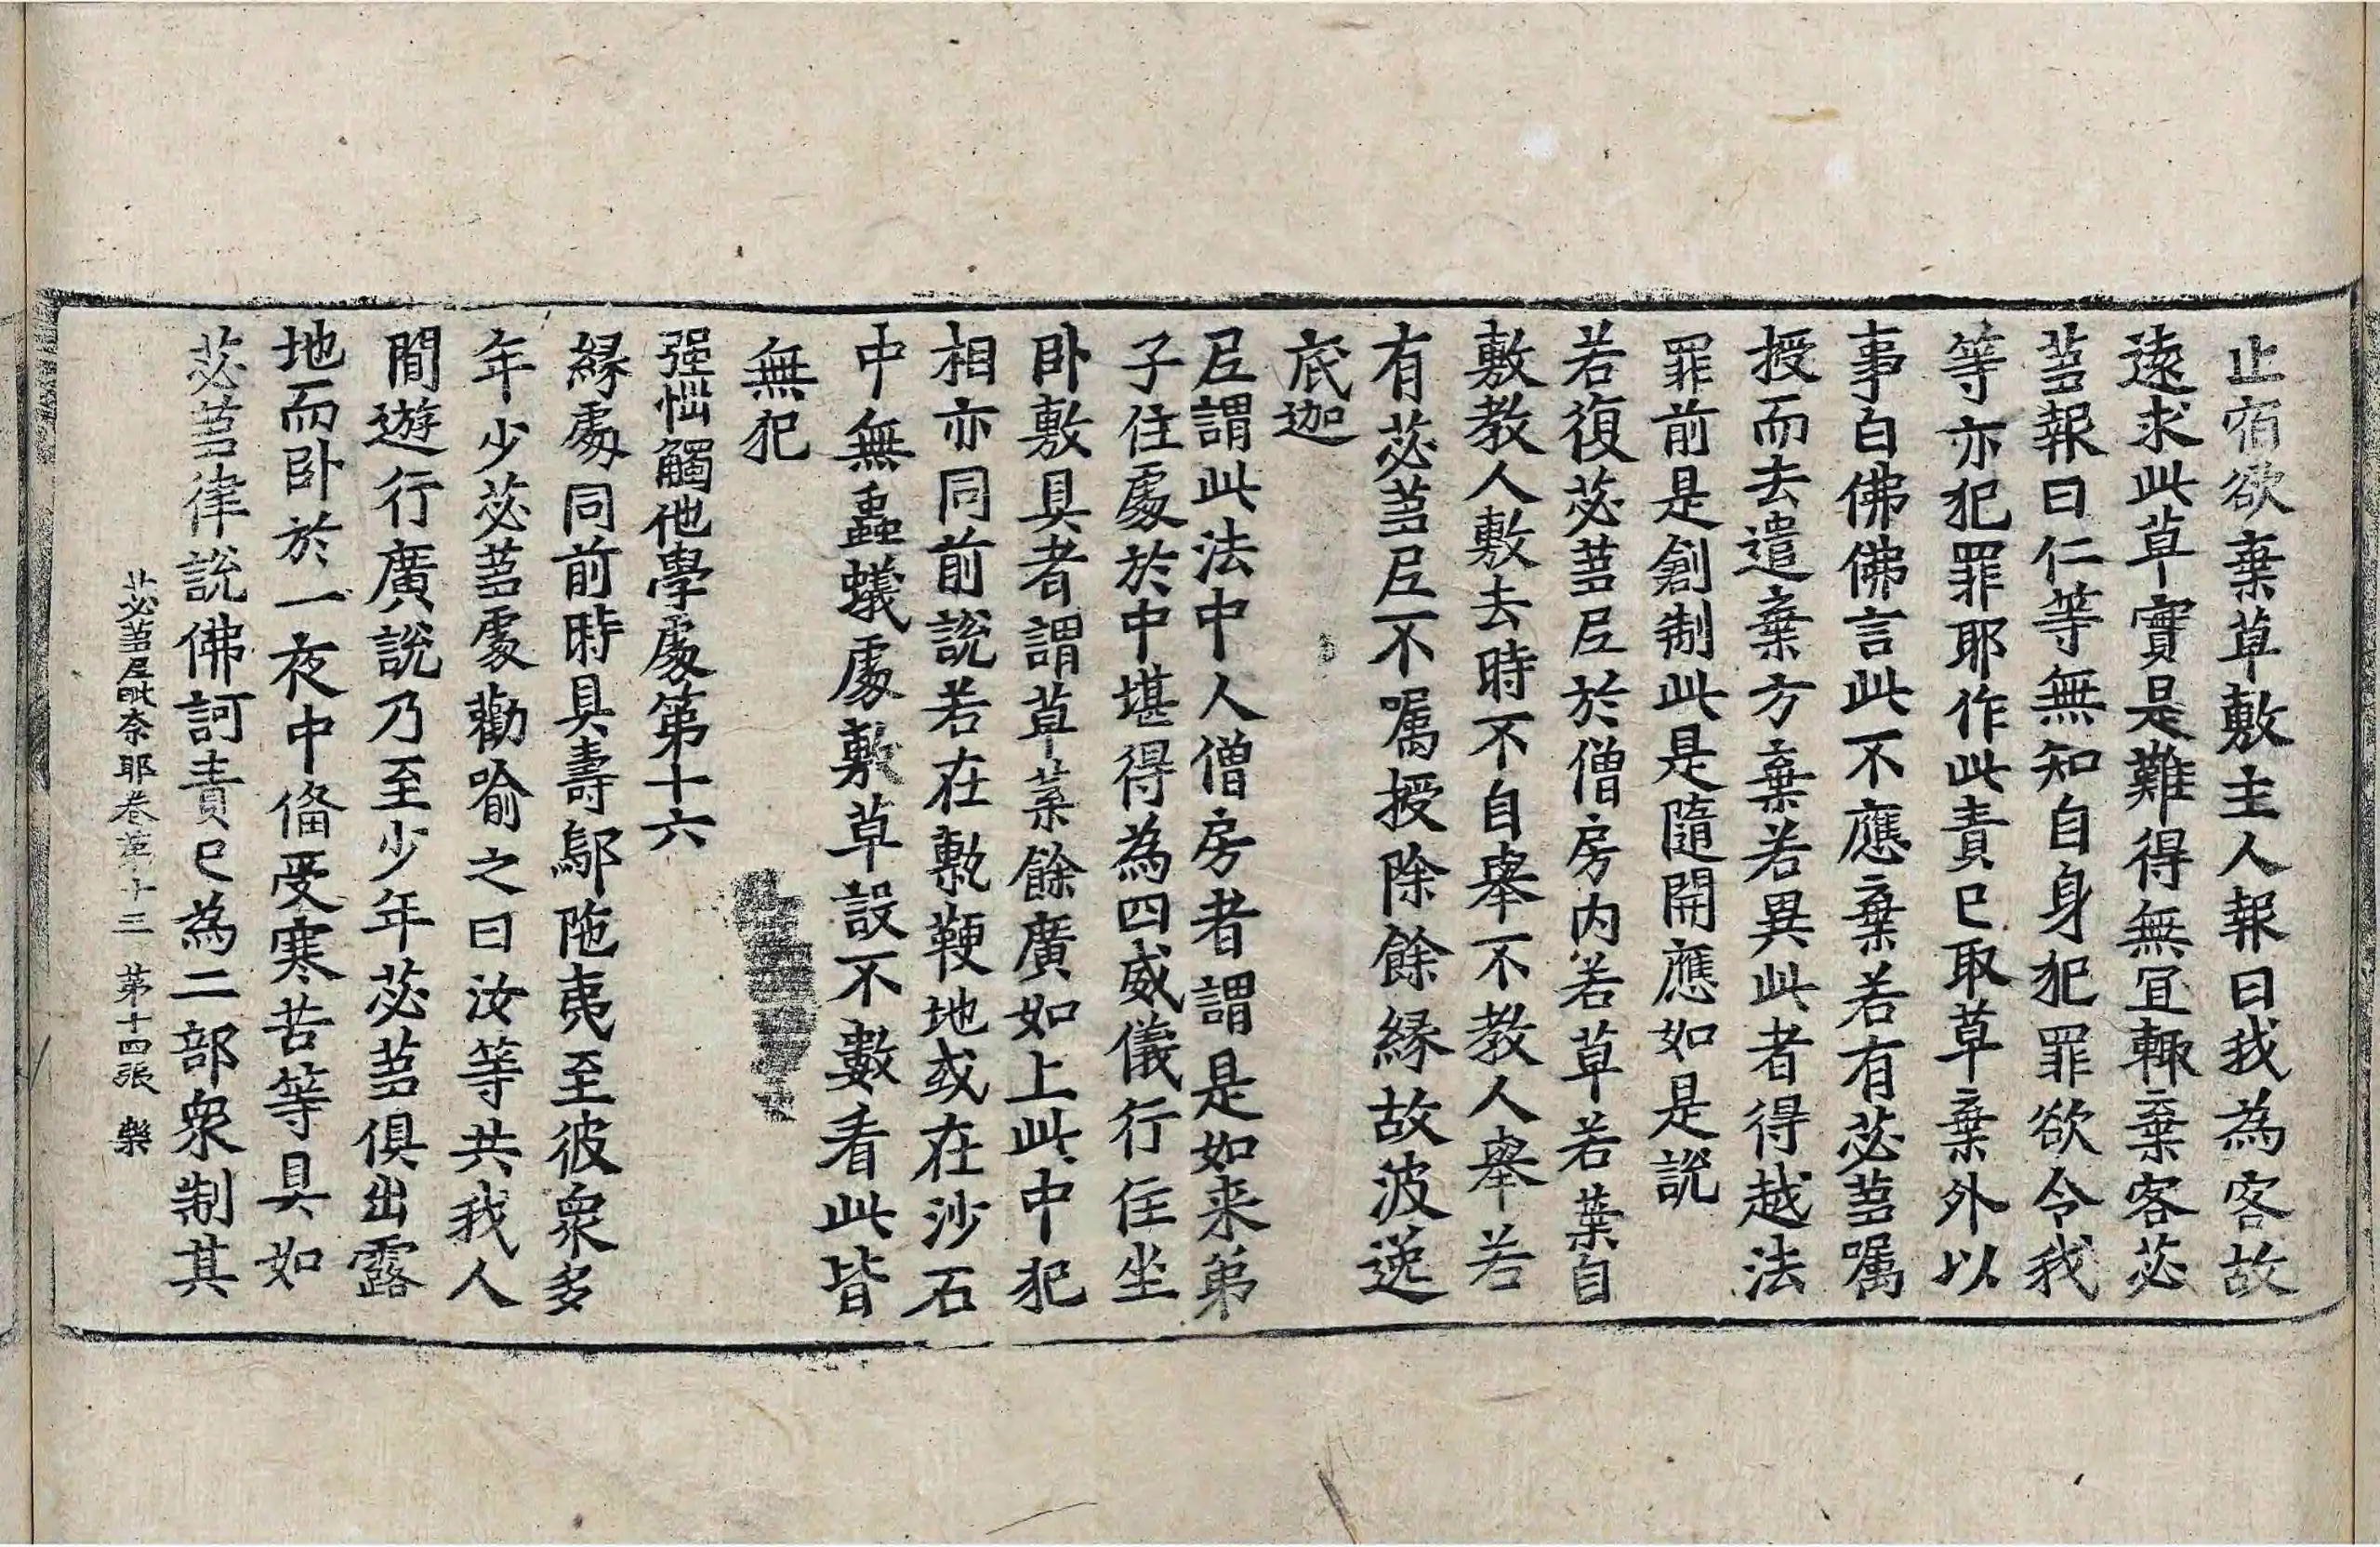 止宿欲棄草敷主人報曰我為客故
遠求此草實是難得無宜輙棄客苾
蒭報曰仁等無知自身犯罪欲令我
等亦犯罪耶作此責已取草棄外以
事白佛佛言此不應棄若有苾蒭囑
授而去遣棄方棄若異此者得越法
罪前是創制此是隨開應如是說
若復苾蒭尼於僧房内若草若葉自
敷教人敷去時不自舉不教人舉若
有苾蒭尼不囑授除餘緣故波逸
底迦
尼謂此法中人僧房者謂是如来弟
子住處於中堪得為四威儀行住坐
卧敷具者謂草葉餘廣如上此中犯
相亦同前說若在𢾾鞕地或在沙石
中無蟲蟻處敷草設不數看此皆
無犯
强惱觸他學處第十六
緣處同前時具壽鄔陁夷至彼衆多
年少苾蒭處勸喻之曰汝等共我人
間遊行廣說乃至少年苾蒭俱出露
地而卧於一夜中俻受寒苦等具如
苾蒭律說佛訶責已為二部衆制其
苾蒭尼毗奈耶卷第十三 第十四張 樂